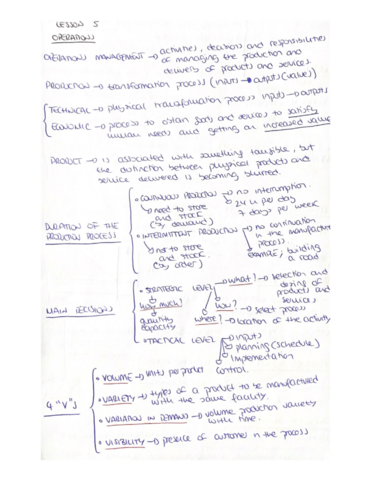 LESSON 5
OPERATIONS
OPERATIONS MANAGEMENT → activities, decisions and responsibilities
of managing the production and
delivery of products and services.
PRODUCTION → transformation process (inputs → outputs (values)
TECHNICAL → physical transformation process inputs → outputs
ECONOMIC → process to obtain goods and services to satisfy
human needs and getting an increased value
PRODUCT → is associated with something tangible, but
the distinction between physical products and
service delivered is becoming blurred.
DURATION OF THE
PRODUCTION PROCESS
• CONTINUOUS PRODUCTION → no interruption.
24 h per day
7 days per week
need to store
and stock
(by demand)
• INTERMITTENT PRODUCTION → no continuation
in the manufacture
process.
example, building
a road
not to store
and stock.
(by order)
MAIN DECISIONS
• STRATEGIC LEVEL
what? → selection and
of
products and
services
how much?
quantity
capacity
how?
→ select process
where? → location of the activity
• TACTICAL LEVEL → inputs
planning (schedule)
implementation
control.
4 "V"s
• VOLUME → units per product
• VARIETY → types of a product to be manufactured
with the same facility.
• VARIATION IN DEMAND → volume production
with time.
• VISIBILITY → presence of customer in the process